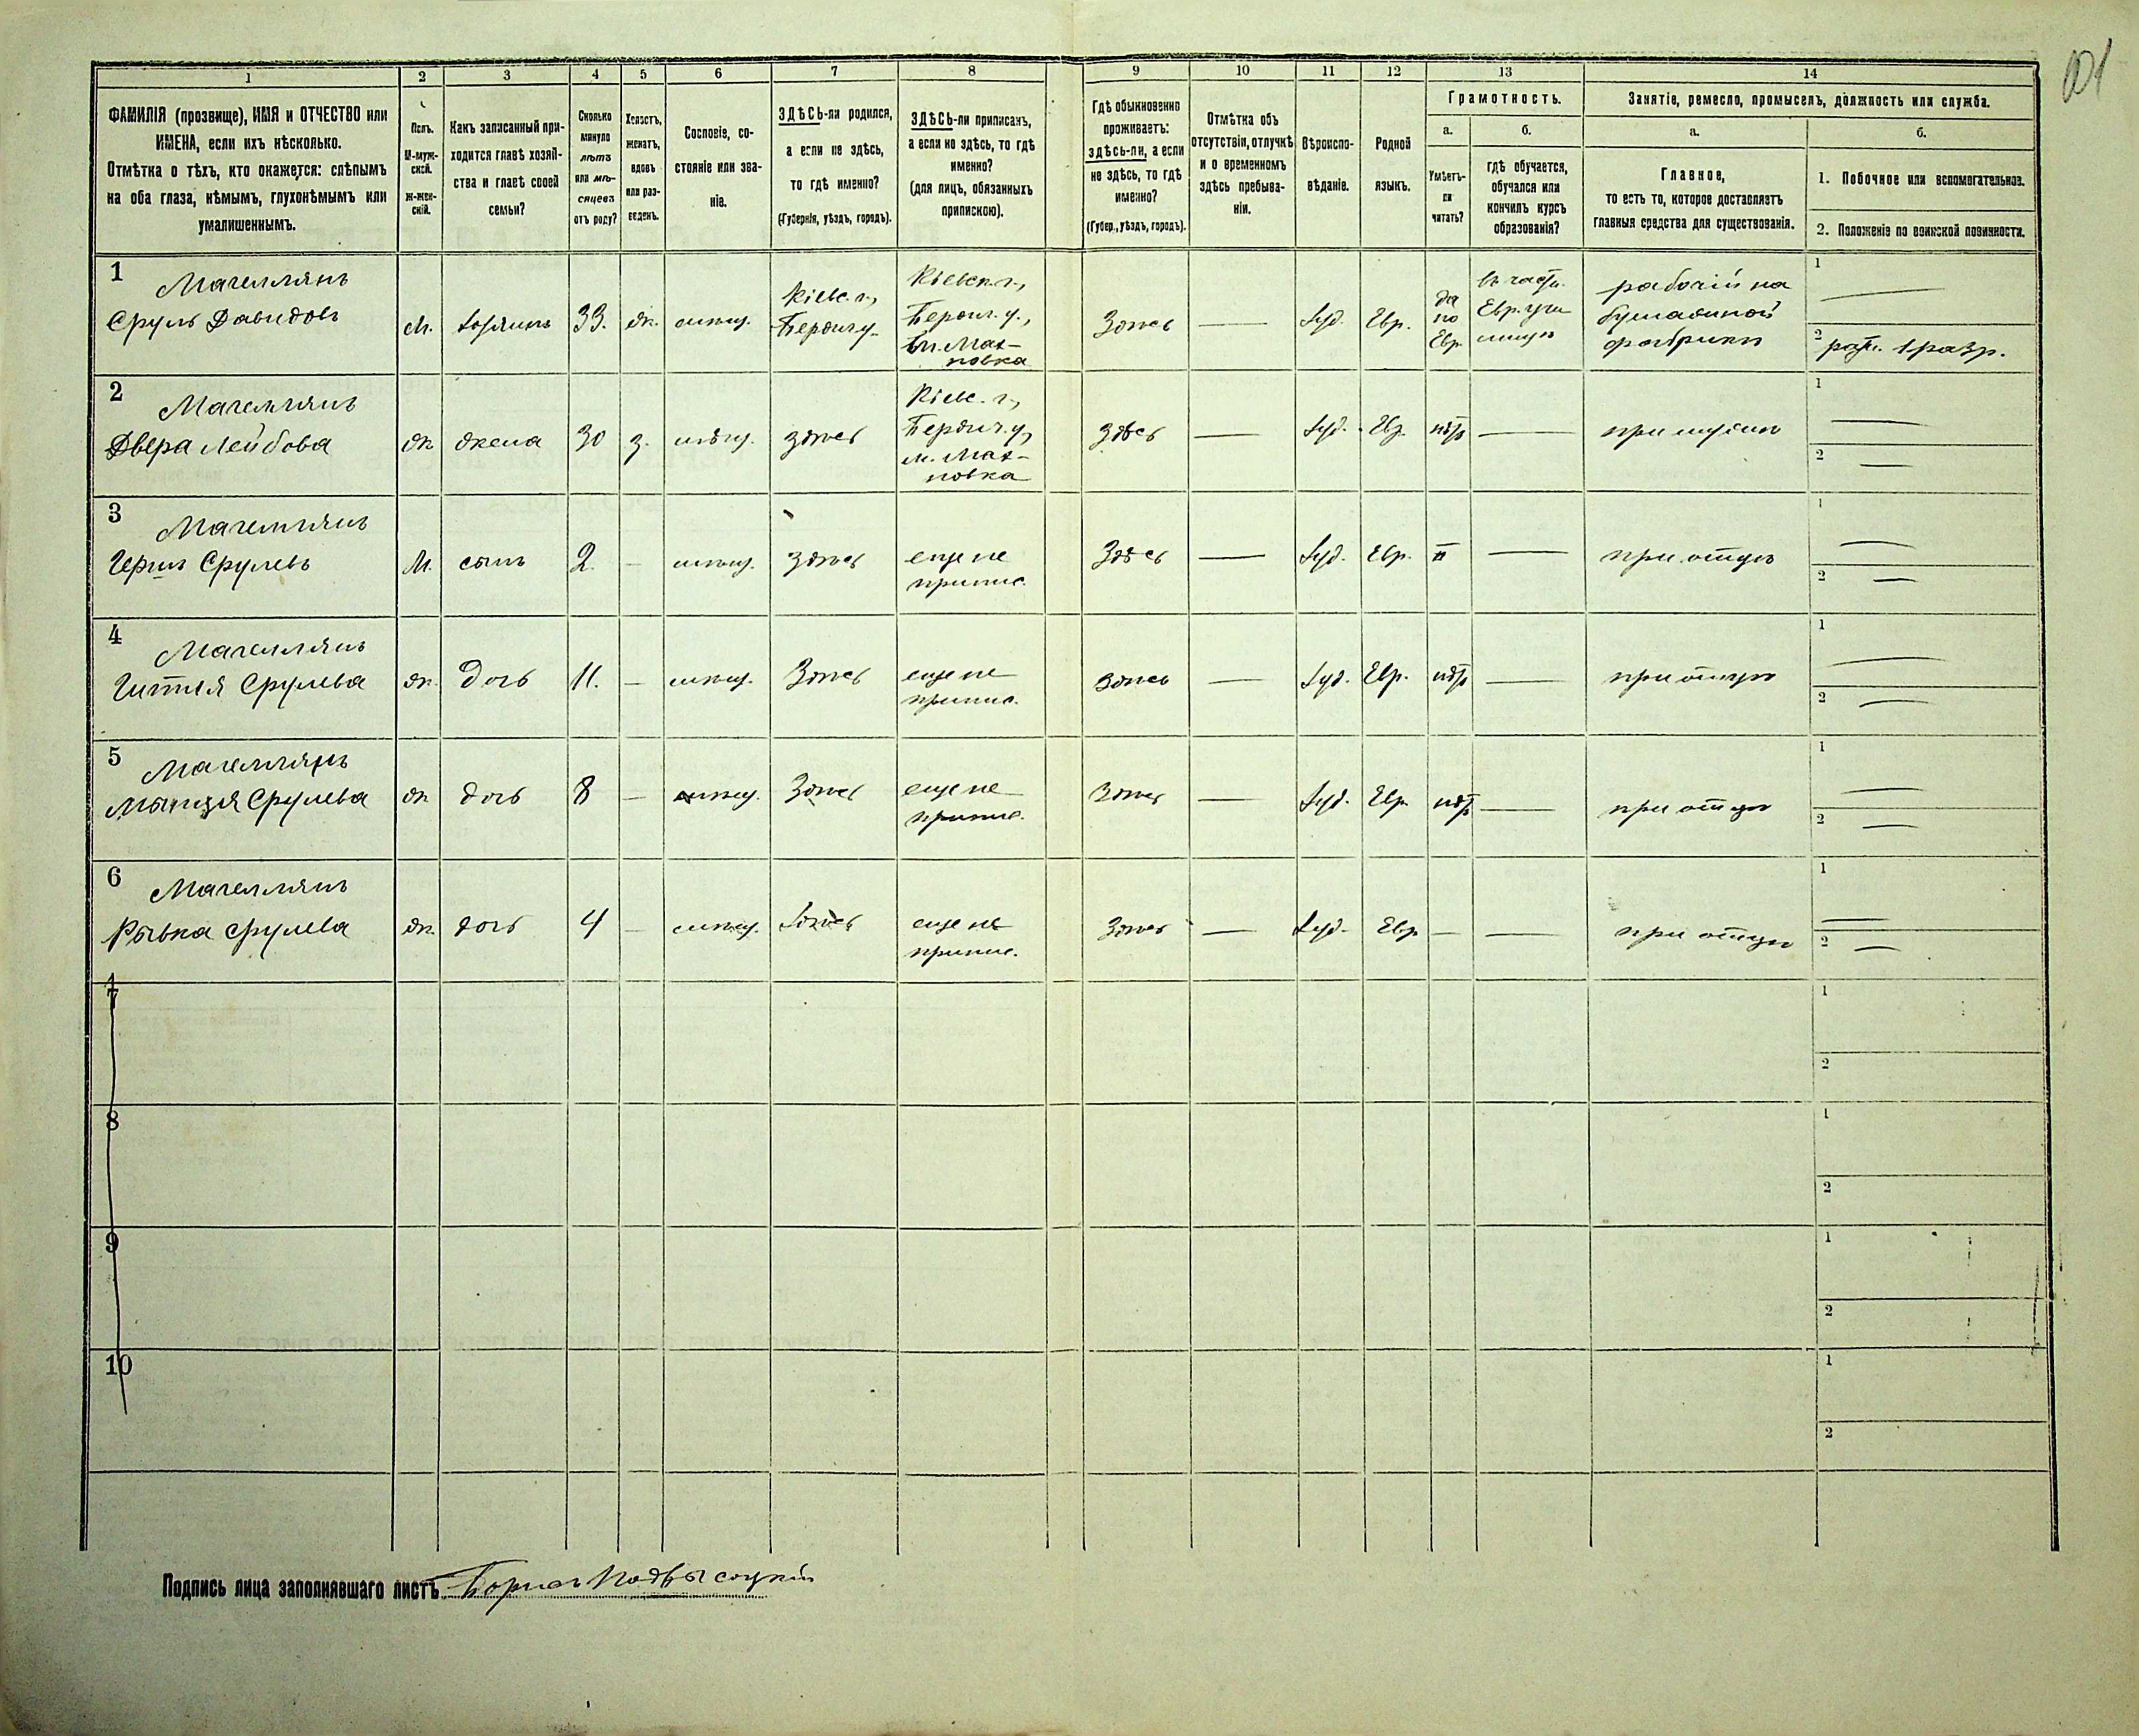 101
1
2
3
4
5
6
7
8
9
10
11
12
13
14
ФАМИЛІЯ (прозвище), ИМЯ и ОТЧЕСТВО или
ИМЕНА, если ихъ нѣсколько.
Отмѣтка о тѣхъ, кто окажется: слѣпымъ
на оба глаза, нѣмымъ, глухонѣмымъ или
умалишеннымъ.
Полъ.
М-муж-
ской.
Ж-жен-
скій.
Какъ записанный при-
ходится главѣ хозяй-
ства и главѣ своей
семьи?
Сколько
минуло
лѣтъ
или мѣ-
сяцевъ
отъ роду?
Холостъ,
женатъ,
вдовъ
или раз-
веденъ.
Сословіе, со-
стояніе или зва-
ніе.
ЗДѢСЬ-ли родился,
а если не здѣсь,
то гдѣ именно?
(Губернія, уѣздъ, городъ).
ЗДѢСЬ-ли приписанъ,
а если не здѣсь, то гдѣ
именно?
(для лицъ, обязанныхъ
припискою).
Гдѣ обыкновенно
проживаетъ:
здѣсь-ли, а если
не здѣсь, то гдѣ
именно?
(Губер., уѣздъ, городъ).
Отмѣтка объ
отсутствіи, отлучкѣ
и о временномъ
здѣсь пребыва-
ніи.
Вѣроиспо-
вѣданіе.
Родной
языкъ.
Грамотность.
а.
б.
Умѣетъ-
ли
читать?
гдѣ обучается,
обучался или
кончилъ курсъ
образованія?
Занятіе, ремесло, промыселъ, должность или служба.
а.
б.
Главное,
то есть то, которое доставляетъ
главныя средства для существованія.
1. Побочное или вспомогательное.
2. Положеніе по воинской повинности.
1
Магеллянъ
Сруль Давидовъ
М.
хозяинъ
33.
ж.
мѣщ.
Кіевс. г.,
Бердич. у.
Кіевск. г.,
Бердич. у.,
м. Мах-
новка
Здѣсь
Іуд.
Евр.
да
по
Евр.
въ частн.
Евр. учи
лищѣ
рабочій на
бумажной
фабрикѣ
1
2
ратн. 1 разр.
2
Магеллянъ
Двера Лейбова
ж
жена
30
з.
мѣщ.
здѣсь
Кіевс. г.,
Бердич. у,
м. Мах-
новка
здѣсь
Іуд.
Евр.
нѣтъ
при мужѣ
1
2
3
Магеллянъ
Гершъ Срулевъ
М.
сынъ
2.
мѣщ.
здѣсь
еще не
припис.
Здѣсь
Іуд.
Евр.
при отцѣ
1
2
4
Магеллянъ
Гитля Срулева
ж.
дочь
11.
мѣщ.
Здѣсь
еще не
припис.
Здѣсь
Іуд.
Евр.
нѣтъ
при отцѣ
1
2
5
Магеллянъ
Срулева
ж
дочь
8
мѣщ.
Здѣсь
еще не
припис.
Здѣсь
Іуд.
Евр.
нѣтъ
при отцѣ
1
2
6
Магеллянъ
Рывка Срулева
ж.
дочь
4
мѣщ.
Здѣсь
еще не
припис.
Здѣсь
Іуд.
Евр
при отцѣ
1
2
7
1
2
8
1
2
9
1
2
10
1
2
Подпись лица заполнявшаго листъ Борисъ Подвысоцкій